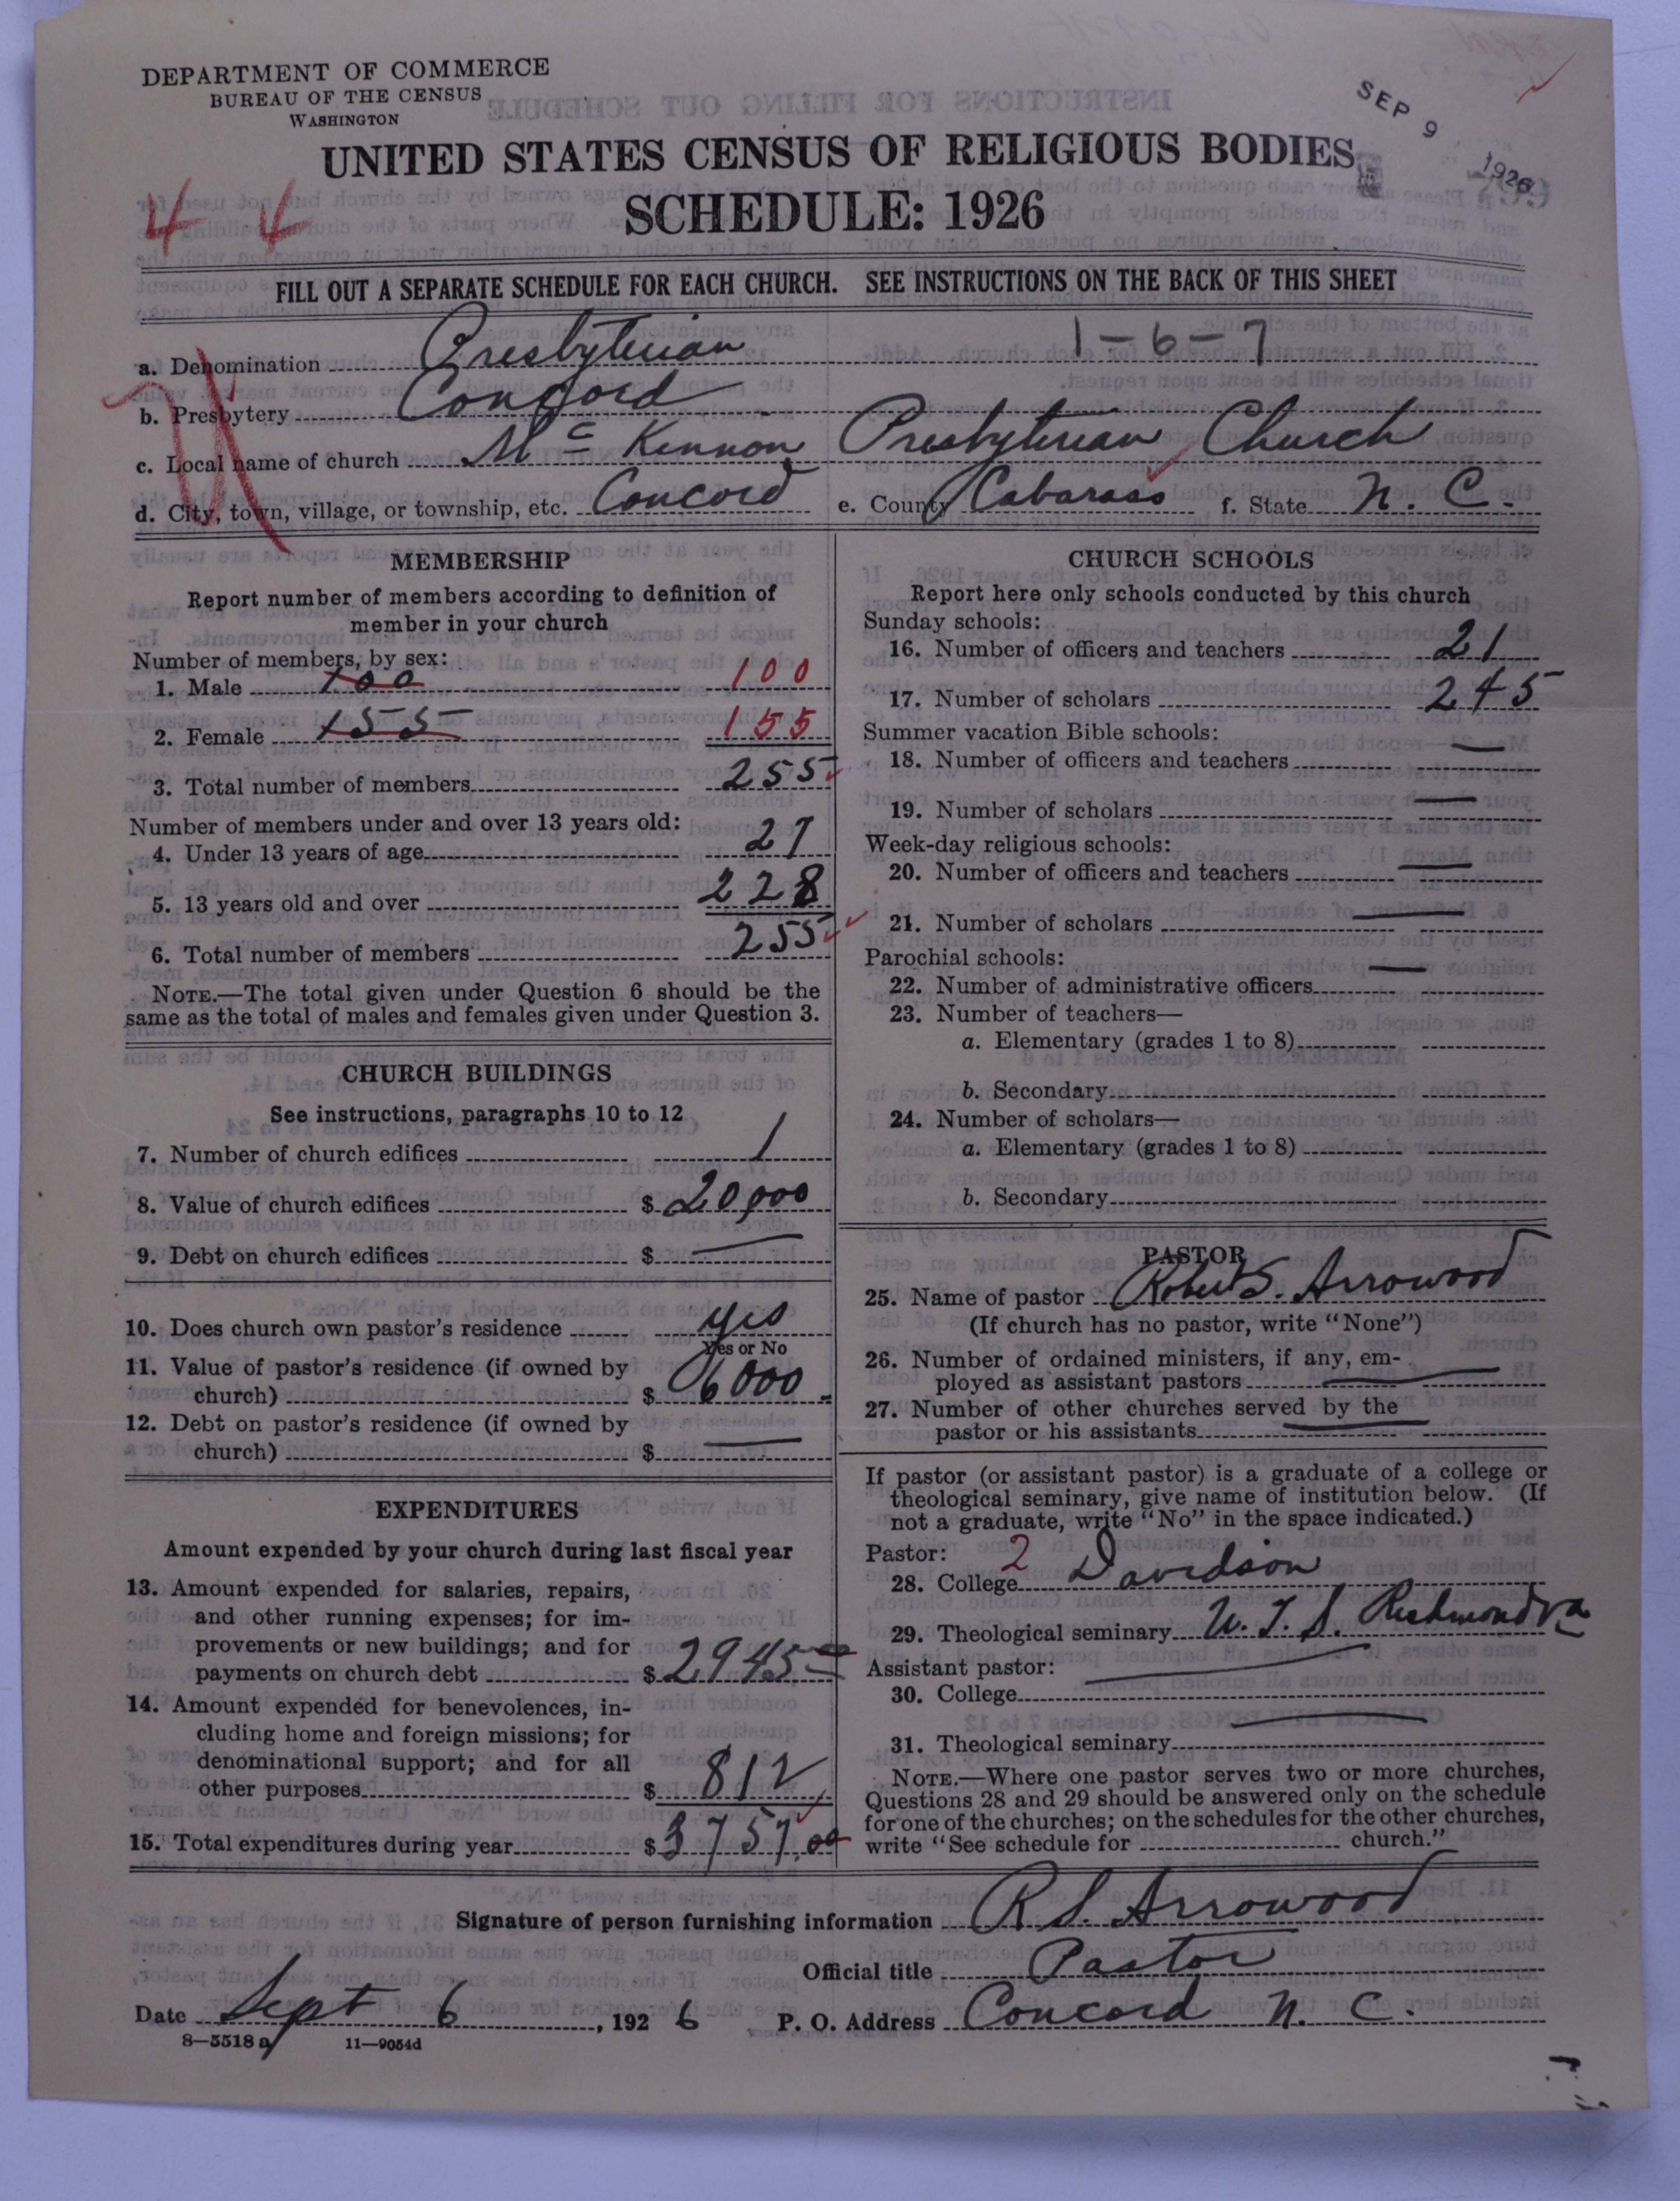 DEPARTMENT OF COMMERCE
BUREAU OF THE CENSUS
WASHINGTON
SEP 9 1926
UNITED STATES CENSUS OF RELIGIOUS BODIES
SCHEDULE: 1926
4 4
FILL OUT A SEPARATE SCHEDULE FOR EACH CHURCH. SEE INSTRUCTIONS ON THE BACK OF THIS SHEET
a. Denomination Presbyterian 1-6-7
b. Presbytery Concord
c. Local name of church Mc Kinnon Presbyterian Church
d. City, town, village, or township, etc. Concord e. County Cabarass f. State N. C.
MEMBERSHIP
Report number of members according to definition of
member in your church
Number of members, by sex:
1. Male 100 100
2. Female 155 155
3. Total number of members 255
Number of members under and over 13 years old:
4. Under 13 years of age 27
5. 13 years old and over 228
6. Total number of members 255
NOTE.—The total given under Question 6 should be the
same as the total of males and females given under Question 3.
CHURCH BUILDINGS
See instructions, paragraphs 10 to 12
7. Number of church edifices 1
8. Value of church edifices $ 20,000
9. Debt on church edifices $ —
10. Does church own pastor's residence yes
Yes or No
11. Value of pastor's residence (if owned by
church) $ 6000
12. Debt on pastor's residence (if owned by
church) $ —
EXPENDITURES
Amount expended by your church during last fiscal year
13. Amount expended for salaries, repairs,
and other running expenses; for im-
provements or new buildings; and for
payments on church debt $ 2945
14. Amount expended for benevolences, in-
cluding home and foreign missions; for
denominational support; and for all
other purposes $ 812
15. Total expenditures during year $ 3757.00
CHURCH SCHOOLS
Report here only schools conducted by this church
Sunday schools:
16. Number of officers and teachers 21
17. Number of scholars 245
Summer vacation Bible schools:
18. Number of officers and teachers —
19. Number of scholars —
Week-day religious schools:
20. Number of officers and teachers —
21. Number of scholars —
Parochial schools:
22. Number of administrative officers —
23. Number of teachers—
a. Elementary (grades 1 to 8)
b. Secondary
24. Number of scholars—
a. Elementary (grades 1 to 8)
b. Secondary
PASTOR
25. Name of pastor Robert S. Arrowood
(If church has no pastor, write "None")
26. Number of ordained ministers, if any, em-
ployed as assistant pastors —
27. Number of other churches served by the
pastor or his assistants —
If pastor (or assistant pastor) is a graduate of a college or
theological seminary, give name of institution below. (If
not a graduate, write "No" in the space indicated.)
Pastor: 2
28. College Davidson
29. Theological seminary U. T. S. Richmond Va
Assistant pastor: —
30. College
31. Theological seminary —
NOTE.—Where one pastor serves two or more churches,
Questions 28 and 29 should be answered only on the schedule
for one of the churches; on the schedules for the other churches,
write "See schedule for church."
Signature of person furnishing information R. S. Arrowood
Official title Pastor
Date Sept 6, 1926 P. O. Address Concord N. C.
8—5518a 11—9054d